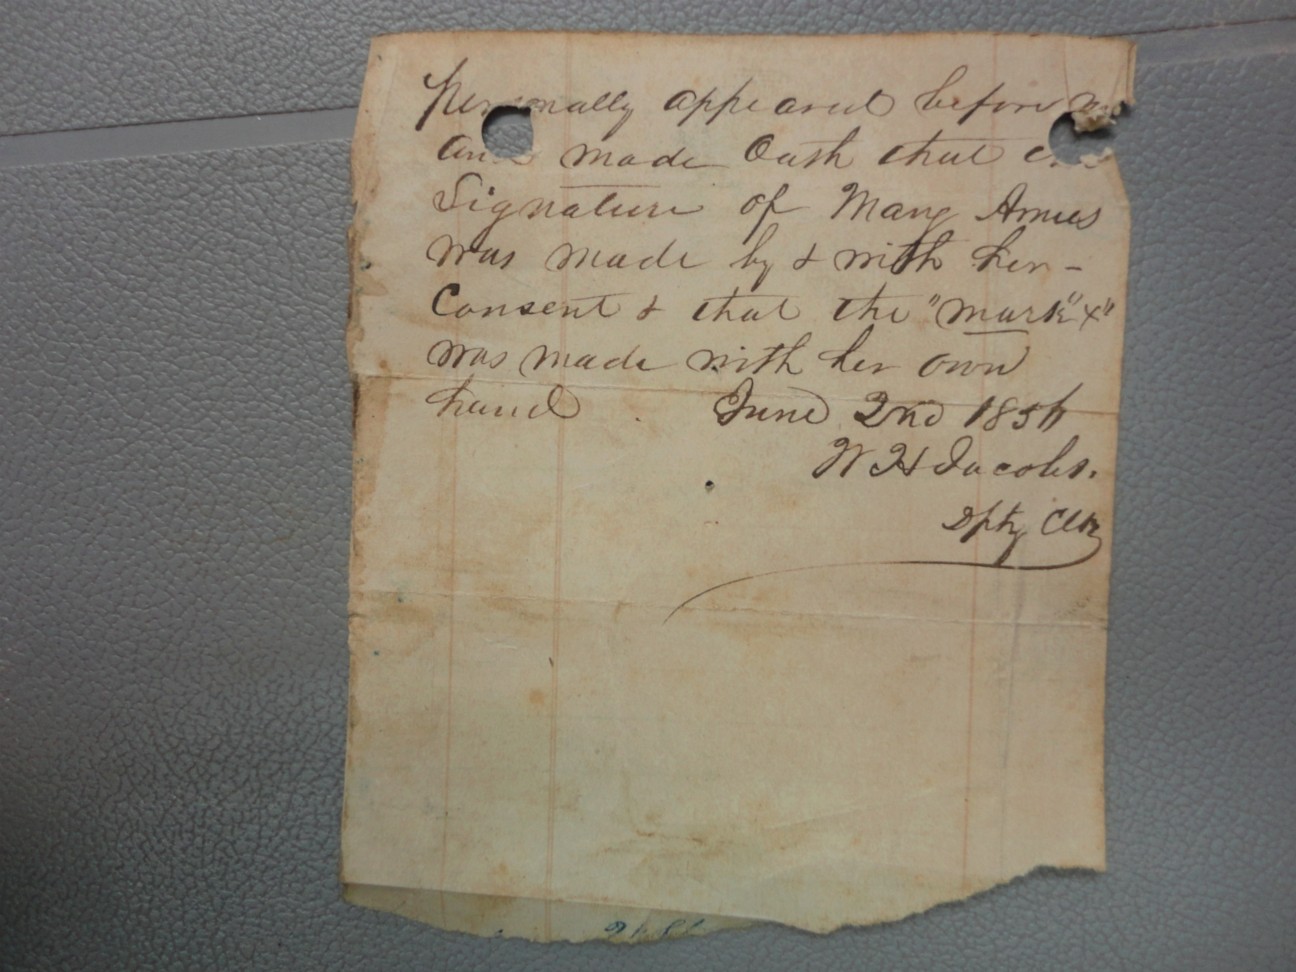 Personally appeared before me
and made Oath that
Signature of Mary Amus
was made by & with her -
Consent & that the "mark" "x"
was made with her own
hand. June 2nd 185
W H Jacobs.
Dpty Clk